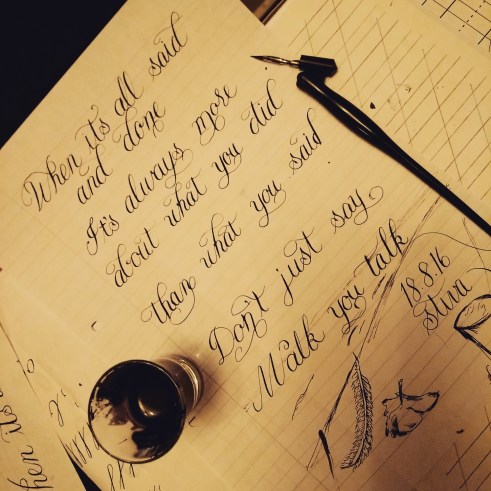 When it's all said
and done
It's always more
about what you did
than what you said
Don't just say
Walk you talk
18.8.16
stuva
hen it's